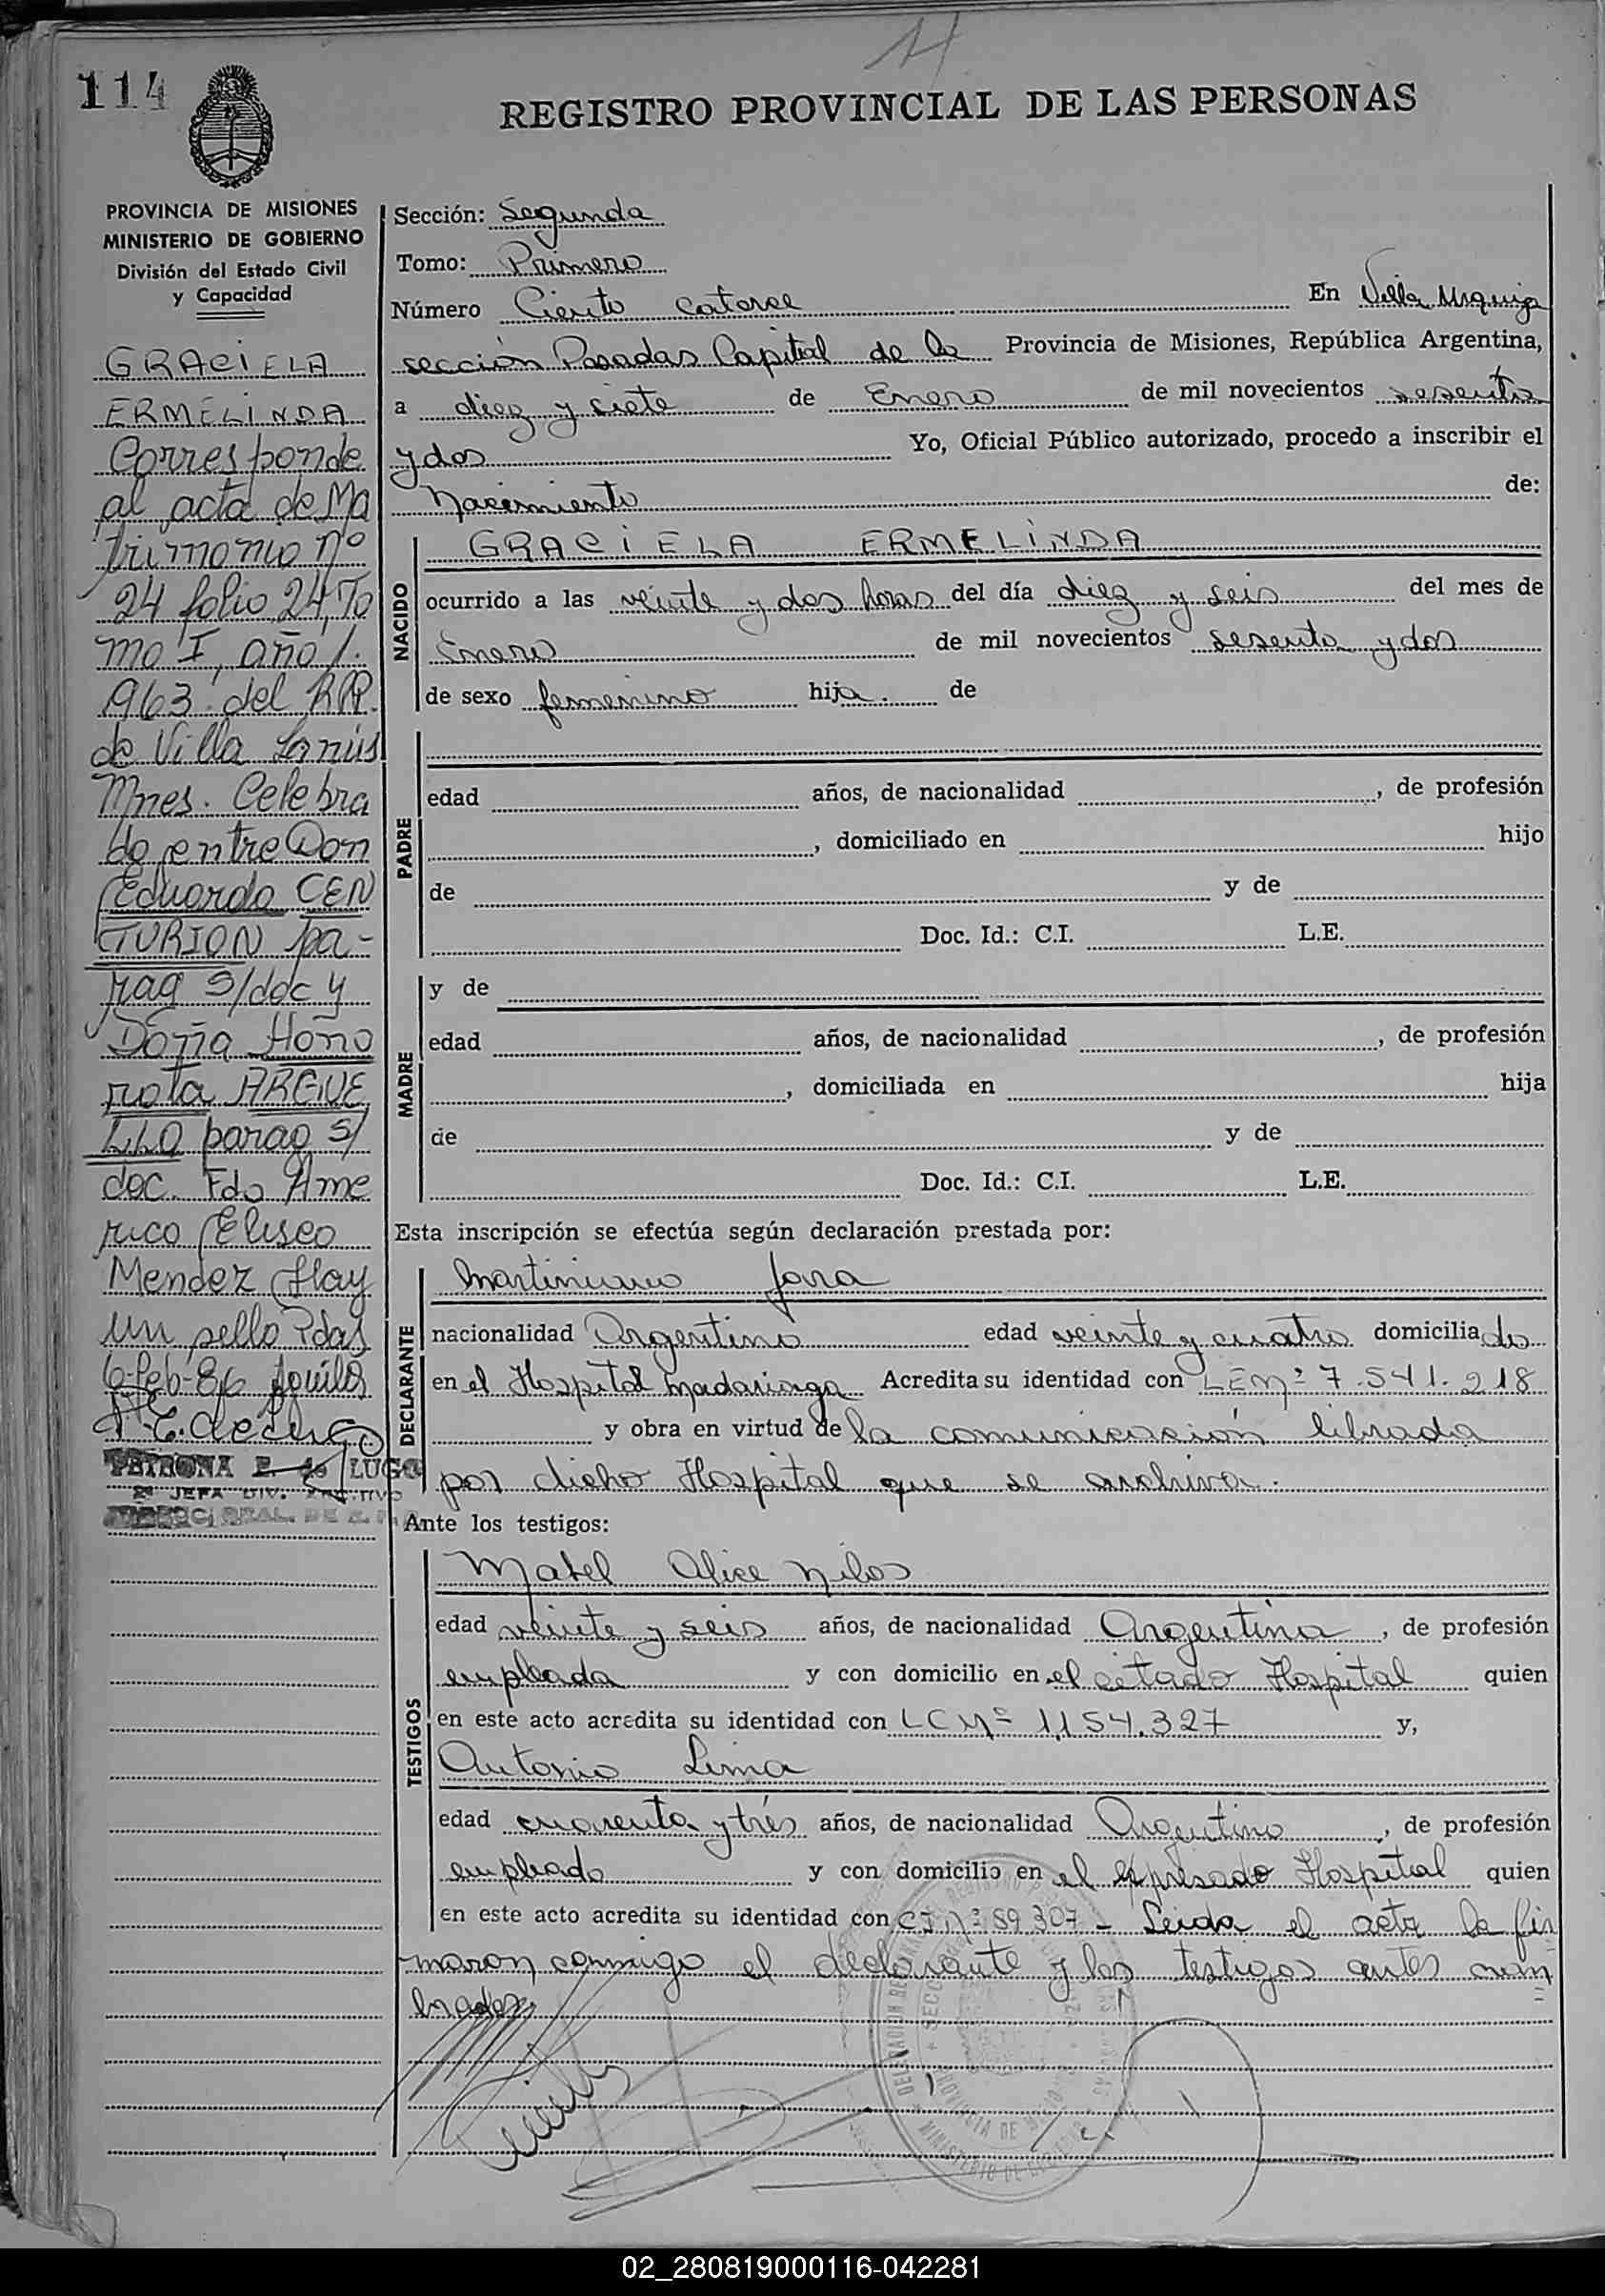 114
REGISTRO PROVINCIAL DE LAS PERSONAS
PROVINCIA DE MISIONES
MINISTERIO DE GOBIERNO
División del Estado Civil
y Capacidad
GRACIELA
ERMELINDA
Corresponde
al acta de Ma
trimonio nº
24 folio 24, To
mo I, año 1.
963 del RPP.
de Villa Lanús
Mnes. Celebra
do entre Don
Eduardo CEN
TURION pa-
rag s/doc y
Doña Hono
rata ARGUE
LLO parag s/
doc. Fdo Ame
rico Eliseo
Mendez Hay
un sello Pdas
6-Feb-86
PETRONA E. de LUGO
2º JEFA DIV.
GRAL. DE
Sección: Segunda
Tomo: Primero
Número Ciento catorce En Villa Urquiza
sección Posadas Capital de la Provincia de Misiones, República Argentina,
a diez y siete de Enero de mil novecientos sesenta
y dos Yo, Oficial Público autorizado, procedo a inscribir el
Nacimiento de:
NACIDO
GRACIELA ERMELINDA
ocurrido a las veinte y dos horas del día diez y seis del mes de
Enero de mil novecientos sesenta y dos
de sexo femenino hija de
PADRE
edad años, de nacionalidad , de profesión
, domiciliado en hijo
de y de
Doc. Id.: C.I. L.E.
MADRE
y de
edad años, de nacionalidad , de profesión
, domiciliada en hija
de y de
Doc. Id.: C.I. L.E.
Esta inscripción se efectúa según declaración prestada por:
DECLARANTE
Martiniano Jara
nacionalidad Argentino edad veinte y cuatro domiciliado
en el Hospital Madariaga Acredita su identidad con LE Nº 7.541.218
y obra en virtud de la comunicación librada
por dicho Hospital que se archiva.
Ante los testigos:
TESTIGOS
Mabel Alice
edad veinte y seis años, de nacionalidad Argentina, de profesión
empleada y con domicilio en el citado Hospital quien
en este acto acredita su identidad con LC Nº 1.154.327 y,
Antonio Lima
edad cuarenta y tres años, de nacionalidad Argentino, de profesión
empleado y con domicilio en el expresado Hospital quien
en este acto acredita su identidad con CI Nº 89.307 - Leída el acta la fir
maron conmigo el declarante y los testigos antes nom
brados
02_280819000116-042281